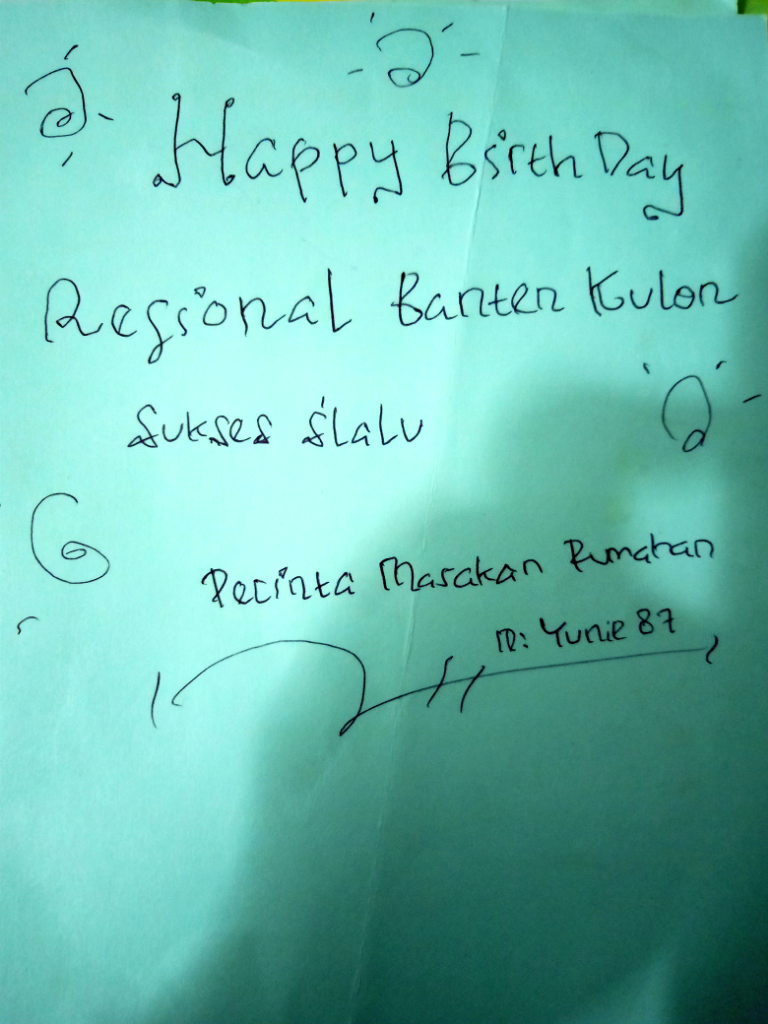 Happy Birth Day
Regional Banten Kulon
Sukses Slalu
Pecinta Masakan Rumahan
ID: Yunie 87